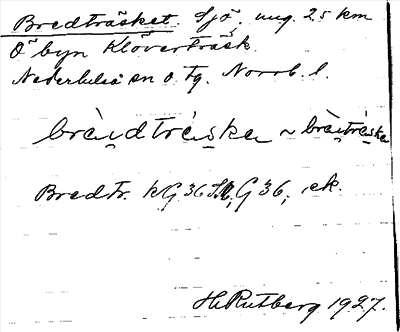 Bredträsket. Sjö. ung. 25 km
Ö byn Klöverträsk.
Nederluleå sn o. tg. Norrb. l.
bràɪdtrȧska ~ brȧɪtrȧska
Bredtr. kG 36 G 36, ek.
H. Rutberg 1927.